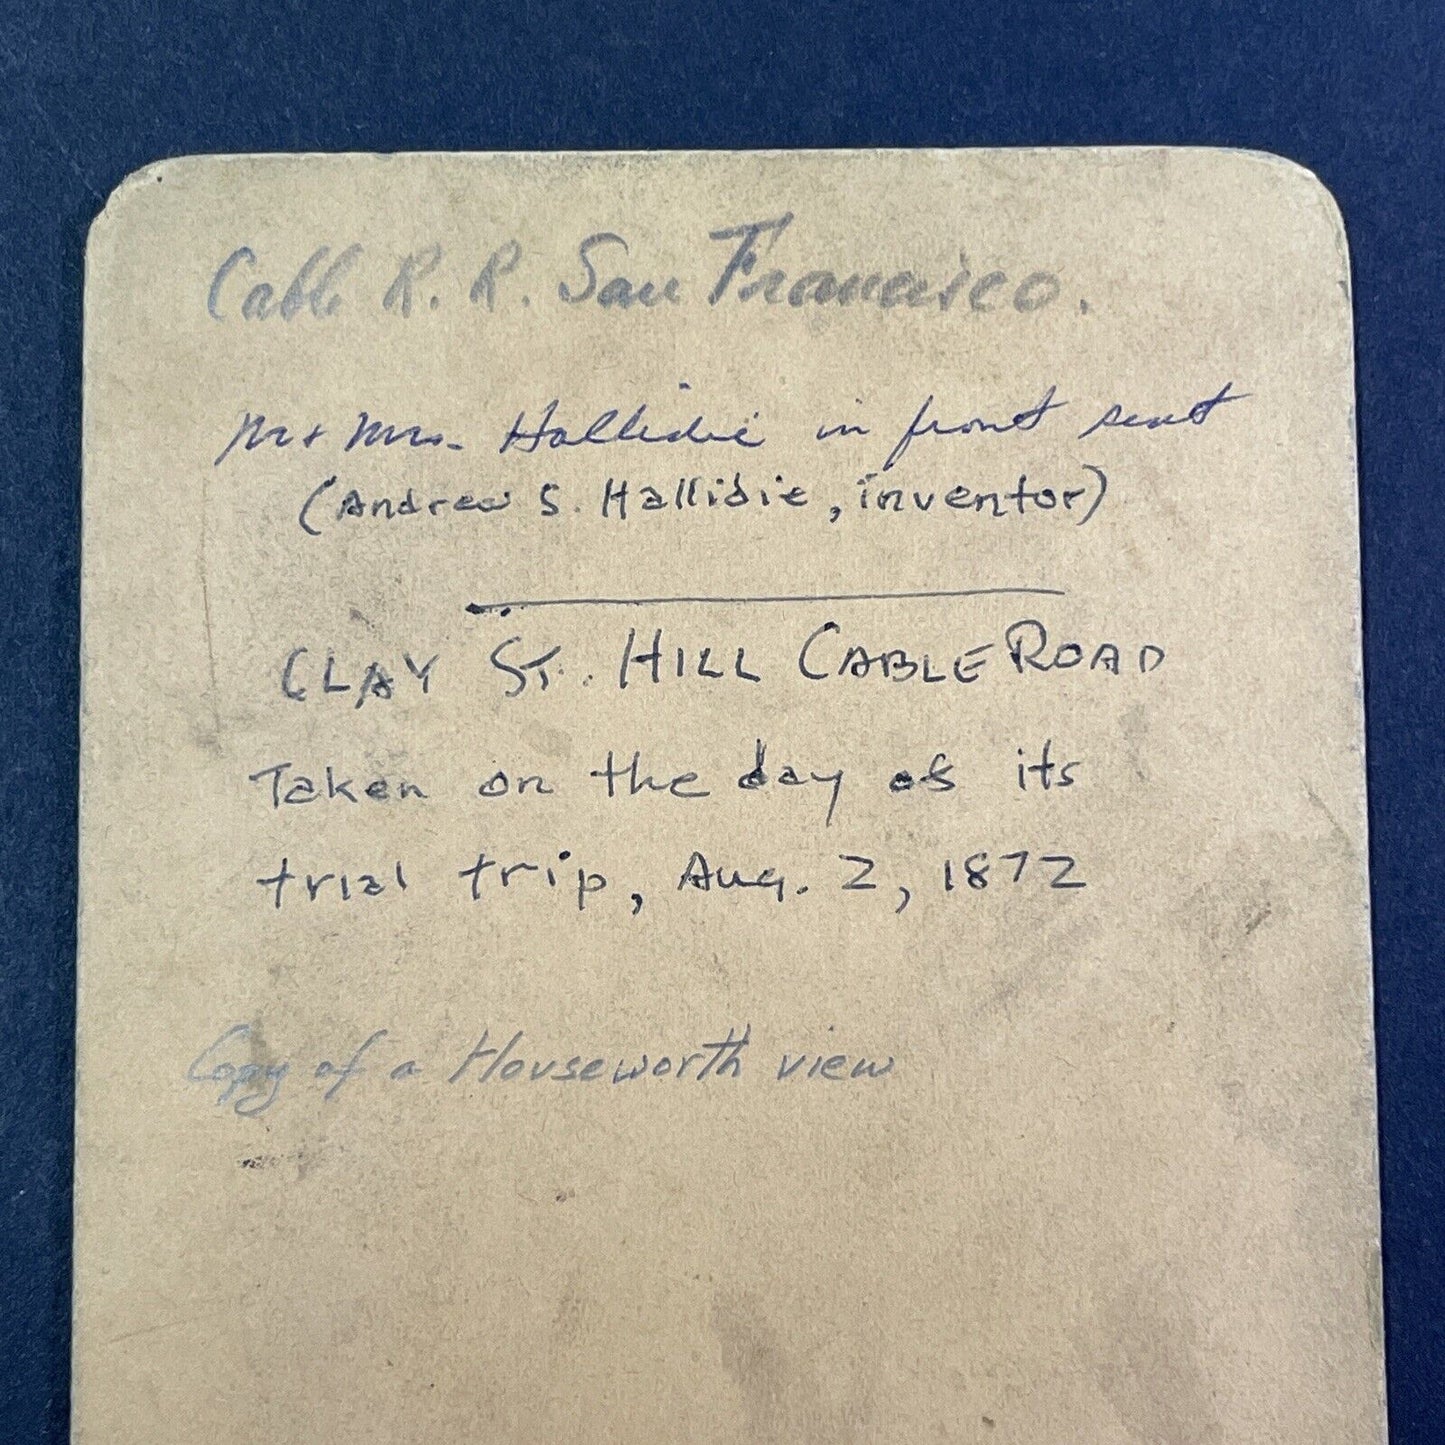 Cable R. R. San Francisco.
Mr & Mrs. Hallidie in front seat
(Andrew S. Hallidie, inventor)
CLAY ST. HILL CABLE ROAD
Taken on the day of its
trial trip, Aug. 2, 1872
Copy of a Houseworth view